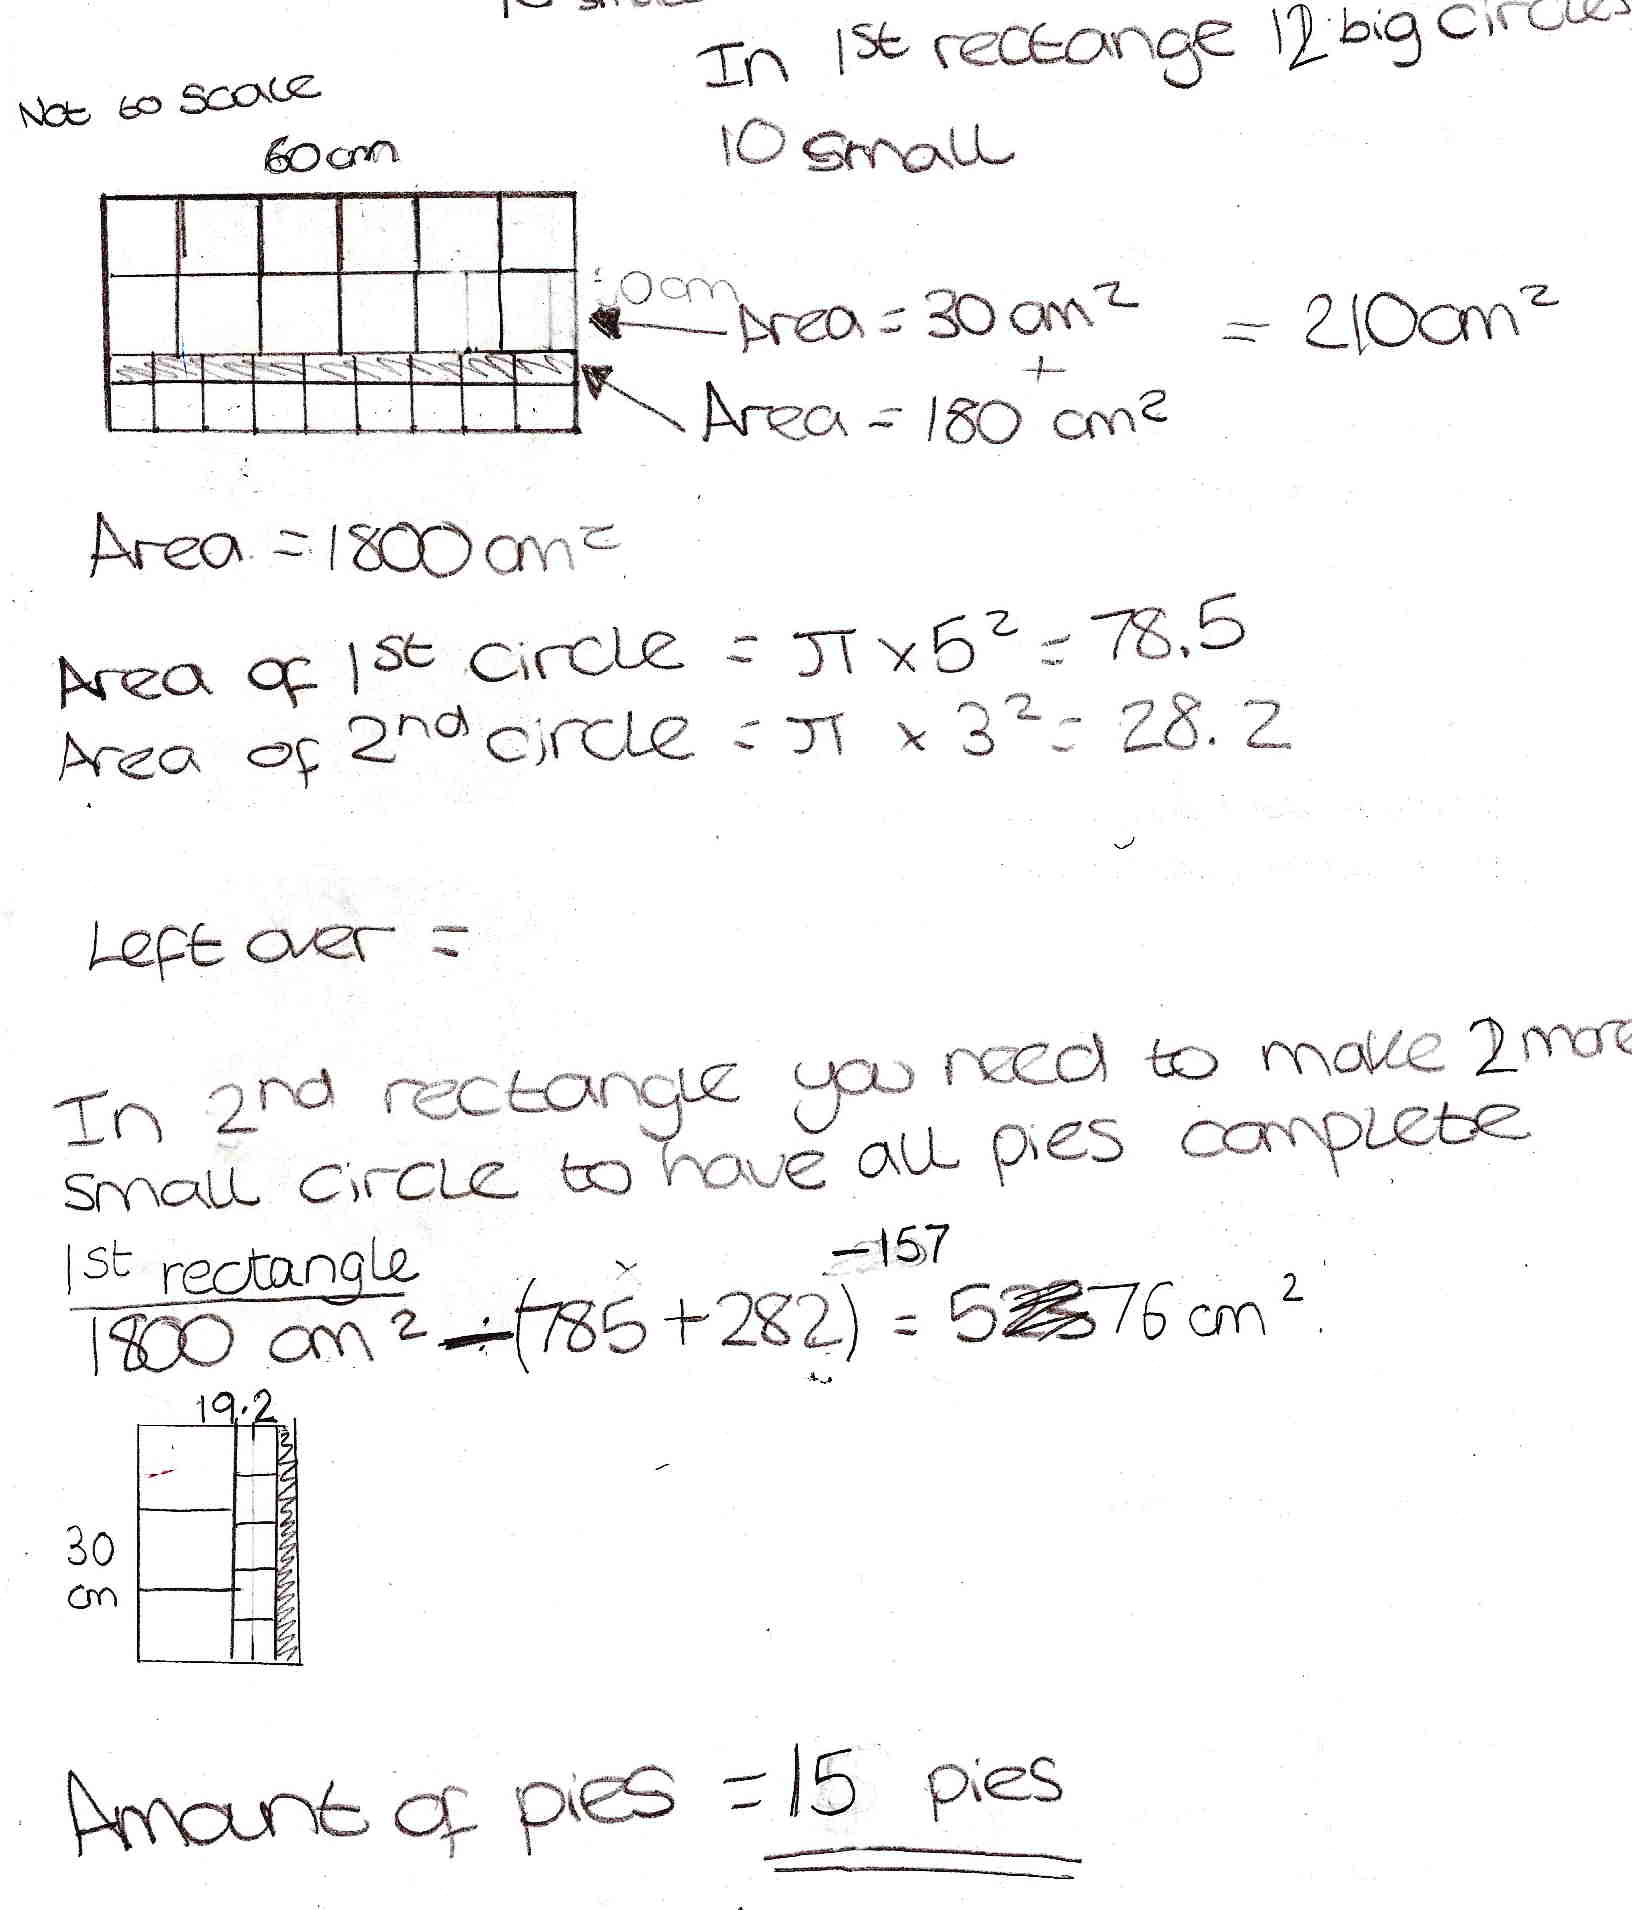 In 1st rectange 12 big circles
10 small
Not to scale
60cm
0cm
Area = 30 cm²
+
Area = 180 cm²
= 210cm²
Area = 1800 cm²
Area of 1st circle = π × 5² = 78.5
Area of 2nd circle = π × 3² = 28.2
Left over =
In 2nd rectangle you need to make 2 more
small circle to have all pies complete
1st rectangle
1800 cm² - (785 + 282) - 157 = 576 cm².
19.2
30
cm
Amount of pies = 15 pies